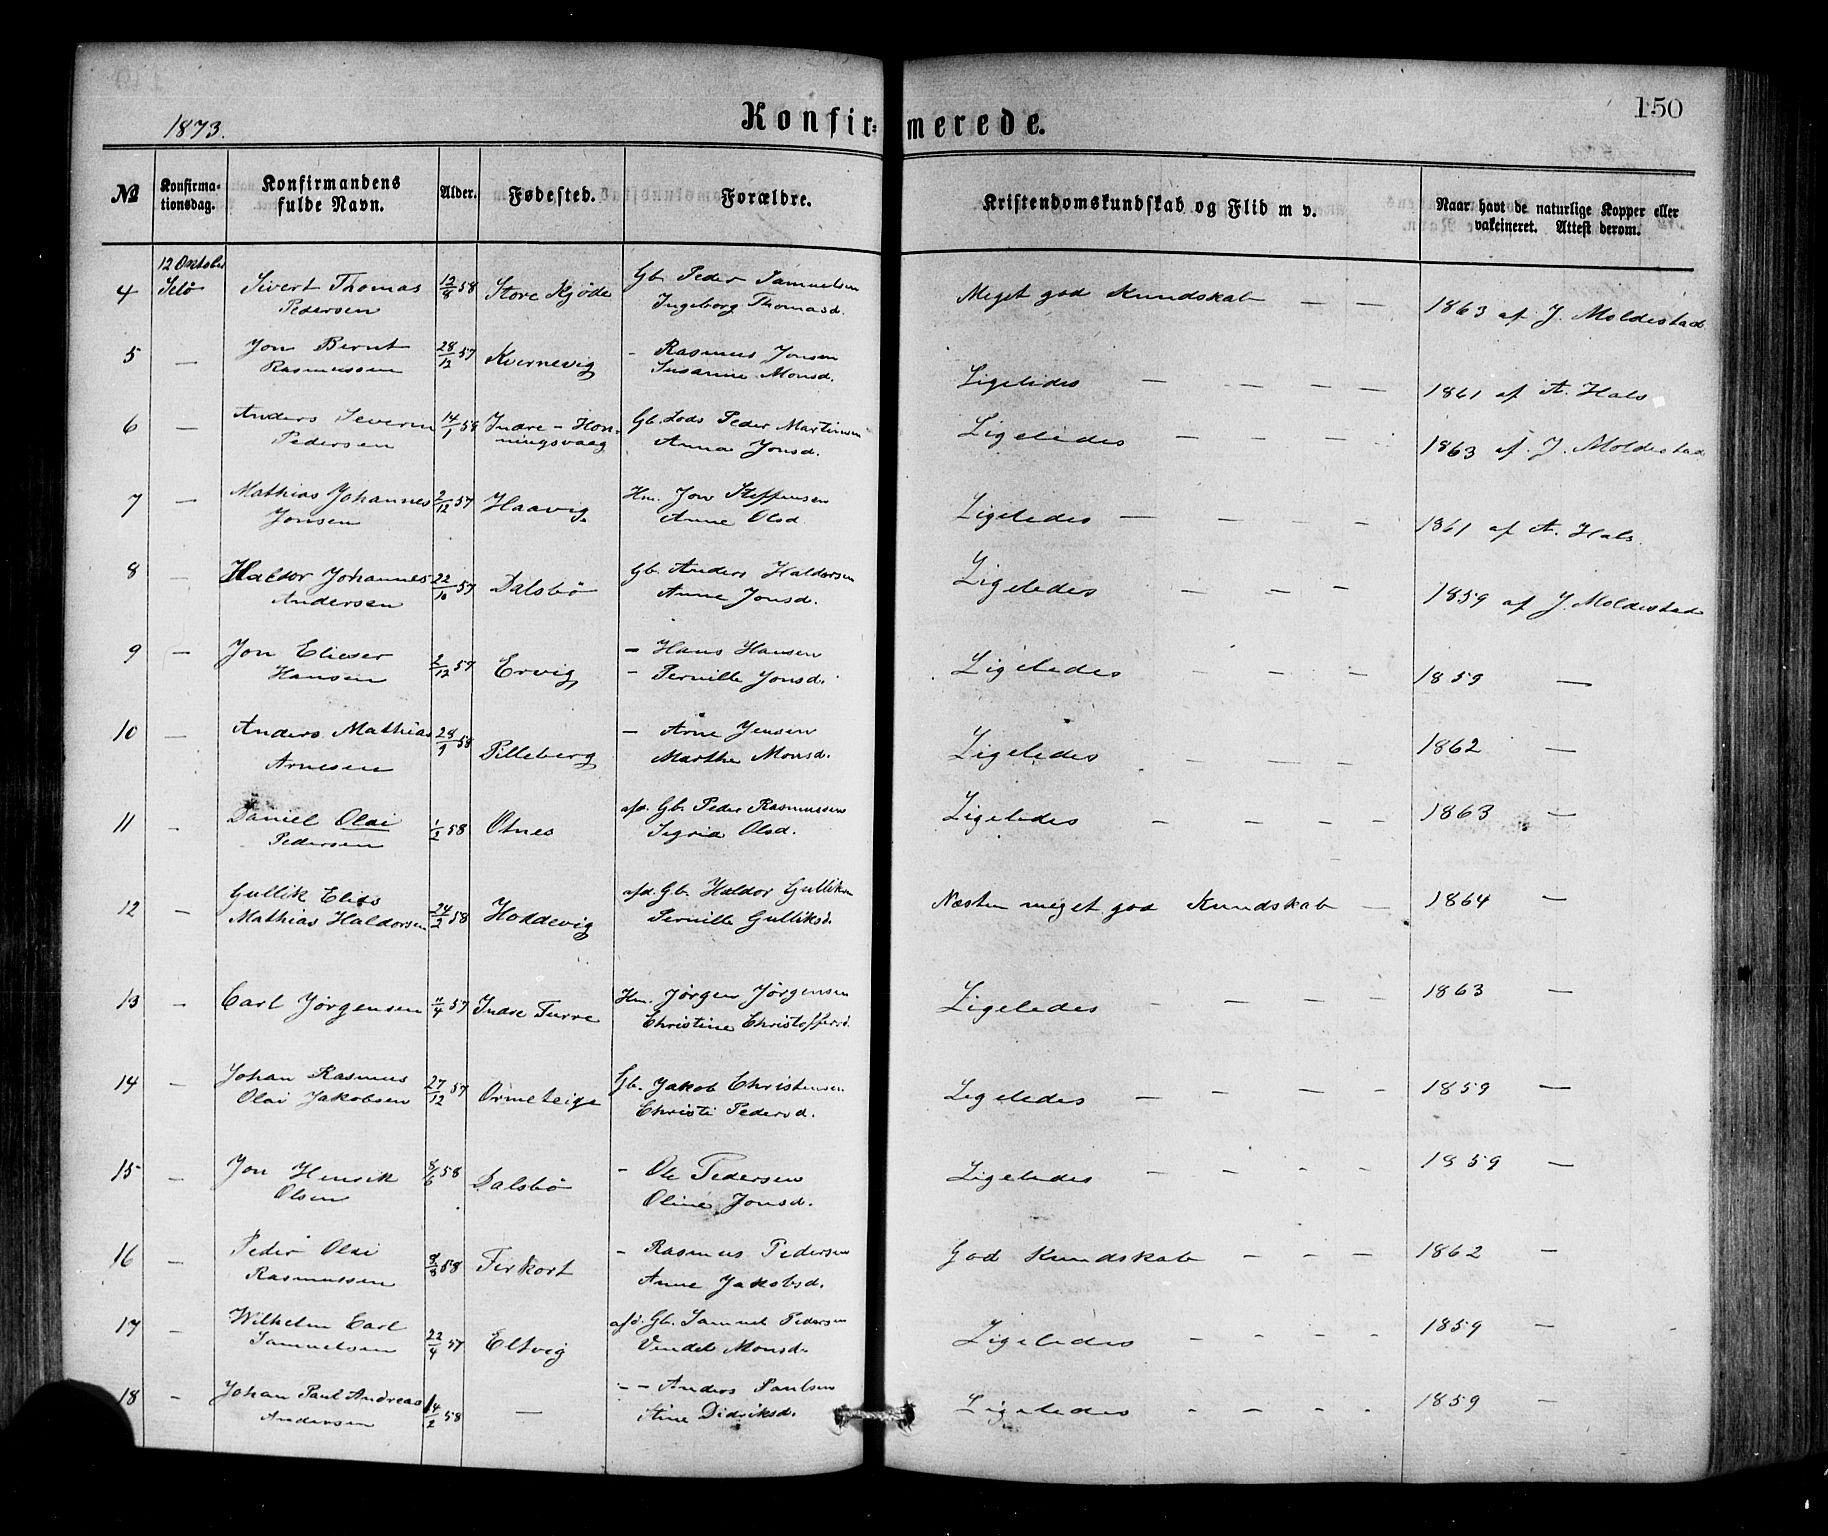 1873.
Konfirmerede.
150
№
Konfirma-
tionsdag.
Konfirmandens
fulde Navn.
Alder.
Fødested.
Forældre.
Kristendomskundskab og Flid m v.
Naar havt de naturlige Kopper eller
vakcineret. Attest derom.
12 Oktober
4 Selø Sivert Thomas 12/8 58 Store Kjøde Gb. Peder Samuelsen Meget god Kundskab — — 1863 af J. Moldestad
Pedersen Ingeborg Thomasd.
5 — Jon Bernt 28/12 57 Kvernevig - Rasmus Jonsen Ligeledes — — — — 1861 af A. Hals
Rasmussen Susanne Monsd.
6 — Anders Severin 14/1 58 Indre-Hon- Gb. Lods Peder Martinsen Ligeledes — — — 1863 af J. Moldestad
Pedersen ningsvaag Anna Jonsd.
7 — Mathias Johannes 2/12 57 Haavig Hm. Jon Steffensen Ligeledes — — — — 1861 af A. Hals.
Jonsen Anne Olsd.
8 — Haldor Johannes 22/10 57 Dalsbø Gb. Anders Haldorsen Ligeledes — — — 1859 af J. Moldestad
Andersen Anne Jonsd.
9 — Jon Elieser 2/12 57 Ervig — Hans Hansen Ligeledes — — — 1859 —
Hansen - Pernille Jonsd.
10 — Anders Mathias 28/9 58 Pilleberg — Arne Jensen Ligeledes — — — — 1862 —
Arnesen Marthe Monsd.
11 - Daniel Olai 1/2 58 Otnes afd. Gb. Peder Rasmussen Ligeledes — — — — 1863 —
Pedersen Sigrid Olsd.
12 — Gullik Elias 24/2 58 Hoddevig afd. Gb. Haldor Gulliksen Næsten meget god Kundskab — 1864 —
Mathias Haldorsen Pernille Gulliksd.
13 — Carl Jørgensen 11/4 57 Indre Furre Hm. Jørgen Jørgensen Ligeledes — — — — 1863 —
Christine Christoffersd.
14 — Johan Rasmus 27/12 57 Ormeteige Gb. Jakob Christensen Ligeledes — — — — 1859 —
Olai Jakobsen Christi Pedersd.
15 — Jon Henrik 8/6 58 Dalsbø - Ole Pedersen Ligeledes — — — — 1859 —
Olsen Oline Jonsd.
16 — Peder Olai 8/8 58 Firkort - Rasmus Pedersen God Kundskab — — — 1862 —
Rasmussen Anne Jakobsd.
17 - Wilhelm Carl 22/4 57 Eltvig afd. Gb. Samuel Pedersen Ligeledes — — — — 1859 —
Samuelsen Vendel Monsd.
18 - Johan Paul Andreas 14/2 58 — - - Anders Paulsen Ligeledes - - - - 1859 —
Andersen Stine Didriksd.